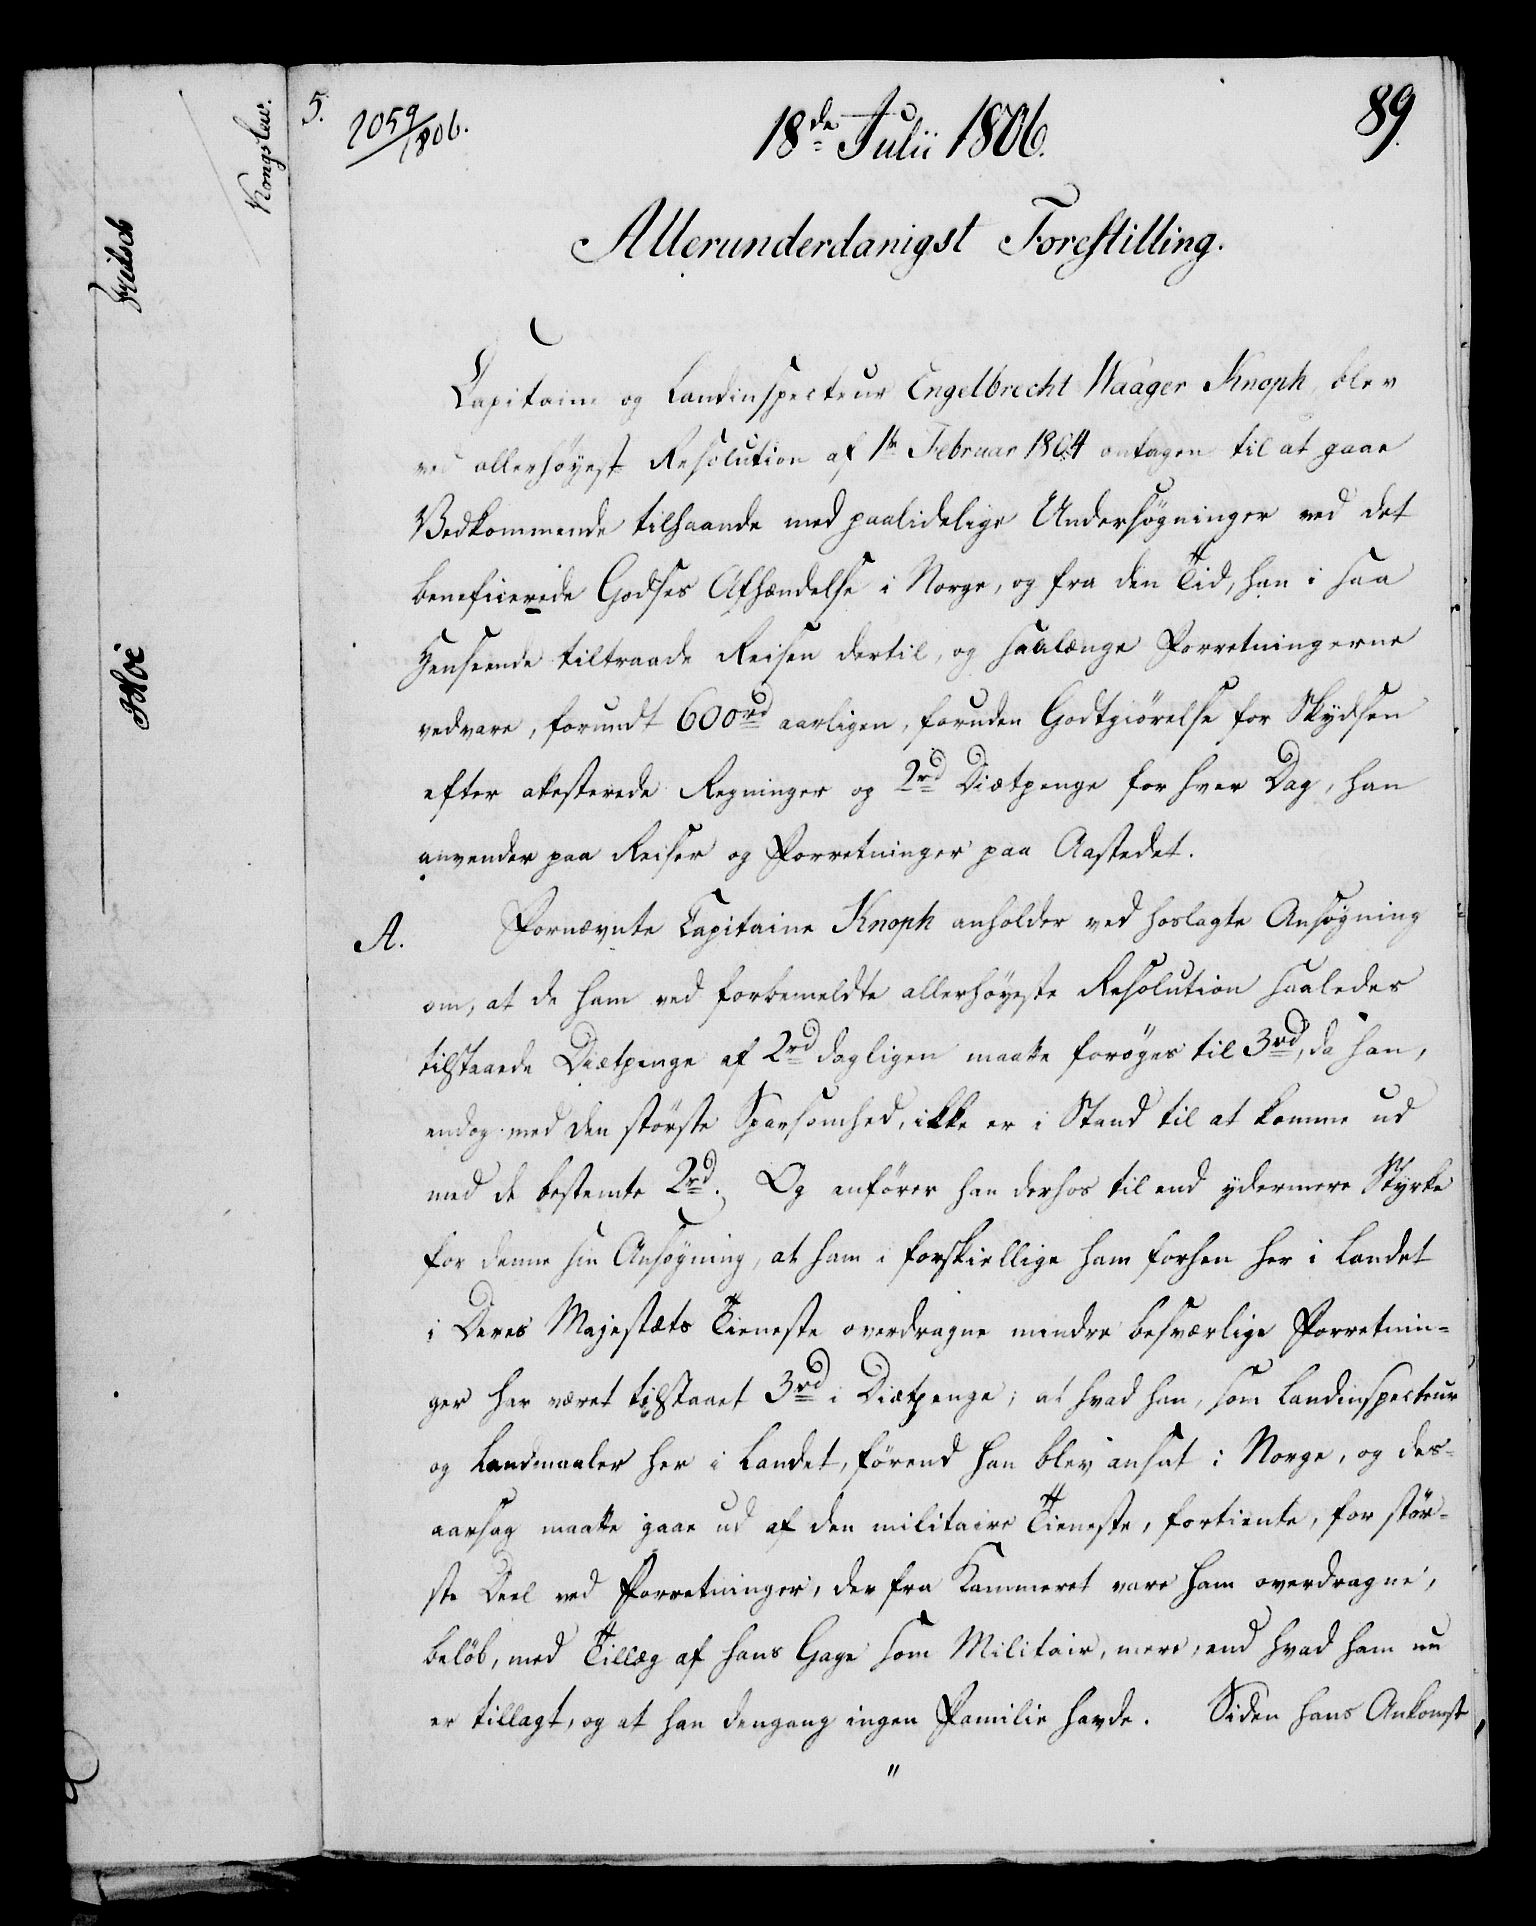 5.
2059/1806.
18de Julii 1806.
89.
Allerunderdanigst Forestilling.
Capitaine og Landinspecteur Engelbrecht Waager Knoph, blev
ved allerhøyest Resolution af 1te Februar 1804 antagen til at gaae
Vedkommende tilhaande med paalidelige Undersøgninger ved det
beneficerede Godses Afhændelse i Norge, og fra den Tid, han i saa
Henseende tiltraade Reisen dertil, og saalænge Forretningerne
vedvare, forundt 600rd aarligen, foruden Godtgiørelse for Skydsen
efter attesterede Regninger og 2rd Diætpenge for hver Dag, han
anvender paa Reiser og Forretninger paa Aastedet.
A. Fornævnte Capitaine Knoph anholder ved hoslagte Ansøgning
om, at de ham ved forbemeldte allerhøyeste Resolution saaledes
tilstaaede Diætpenge af 2rd dagligen maatte forøges til 3rd, da han,
endog med den største Sparsomhed, ikke er i Stand til at komme ud
med de bestemte 2rd. Og anfører han derhos til end ydermere Styrke
for denne sin Ansøgning, at ham i forskiellige ham forhen her i Landet
i Deres Majestæts Tieneste overdragne mindre besværlige Forretnin-
ger har været tilstaaet 3rd i Diætpenge; at hvad han, som Landinspecteur
og Landmaaler her i Landet, førend han blev ansat i Norge, og des-
aarsag maatte gaae ud af den militaire Tieneste, fortiente, for stør-
ste Deel ved Forretninger, der fra Kammeret vare ham overdragne,
beløb, med Tillæg af hans Gage som Militair, mere, end hvad ham nu
er tillagt, og at han dengang ingen Familie havde. Siden hans Ankomst
"
Kongslew.